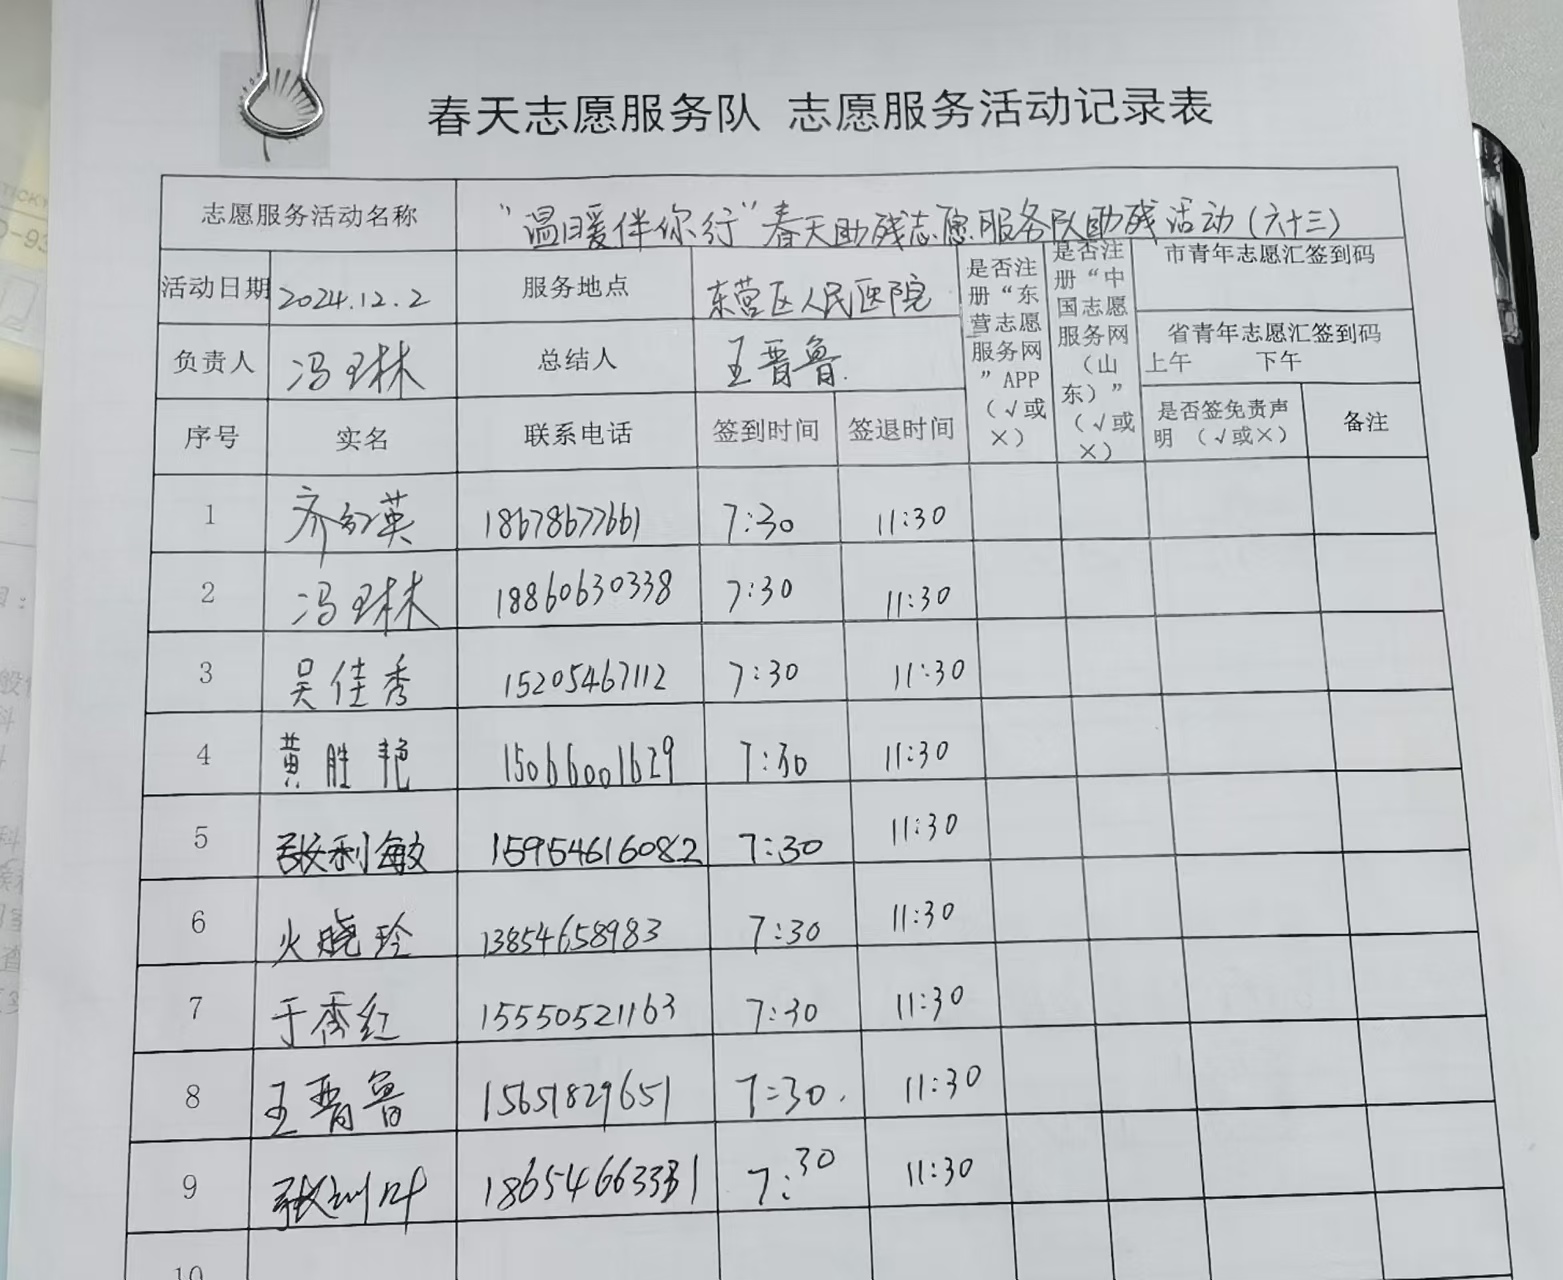 春天志愿服务队 志愿服务活动记录表
志愿服务活动名称 “温暖伴你行”春天助残志愿服务队助残活动(六十三)
活动日期 2024.12.2 服务地点 东营区人民医院 是否注册“东营志愿服务网”APP（√或×） 是否注册“中国志愿服务网（山东）”（√或×） 市青年志愿汇签到码
负责人 冯琳 总结人 王晋鲁 省青年志愿汇签到码
上午 下午
序号 实名 联系电话 签到时间 签退时间 是否签免责声明 （√或×） 备注
1 齐红英 18678677661 7:30 11:30
2 冯琳 18860630338 7:30 11:30
3 吴佳秀 15205467112 7:30 11:30
4 黄胜艳 15066001629 7:30 11:30
5 张利敏 15954616082 7:30 11:30
6 火晓玲 13854658983 7:30 11:30
7 于秀红 15550521163 7:30 11:30
8 王晋鲁 15651829651 7:30 11:30
9 7:30 11:30
10